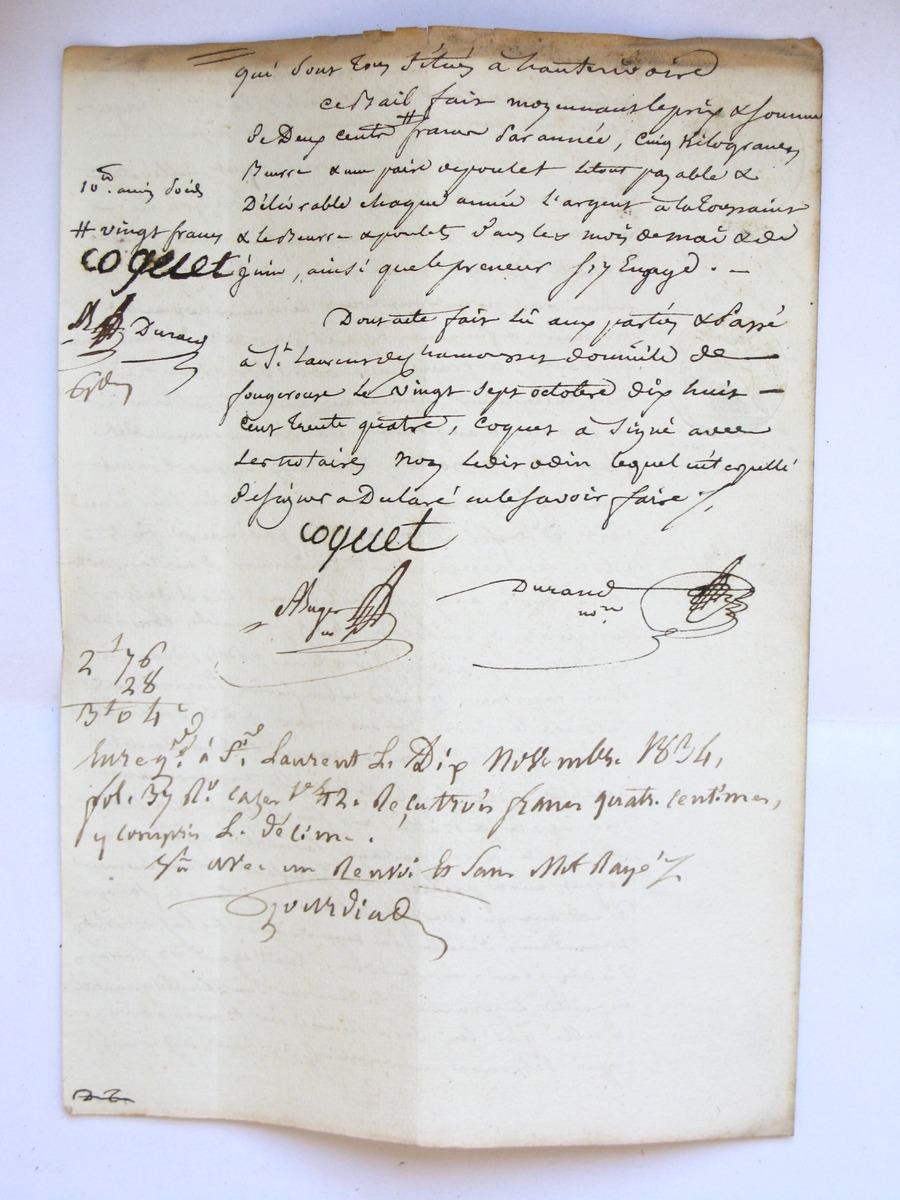 qui sont tous situés à hauterivoire
ce Bail fait moyennant le prix & somme
de Deux cents # francs par année, Cinq Kilogrames
Beurre & une paire de poulet le tout payable &
Délivrable chaque année l'argent à la toussaint
& le Beurre & poulets dans les mois de mai & de
juin, ainsi que le preneur s'y Engage. —
# vingt francs
coquet
Durand
Dont acte fait lû aux parties & Passé
à St. Laurent de chamousset domicile de
fougerouse le vingt sept octobre dix huit —
cent trente quatre, Coquet à Signé avec
les notaires Non ledit odin lequel interpellé
de signer a Déclaré ne le savoir faire
coquet
Durand
nore
2f 76
28
3f 04c
Enregré. à St. Laurent le Dix Novembre 1834,
fol. 37 Ro. cases 1e & 2. Reçu trois francs quatre centimes,
y compris le décime.
avec un Renvoi & sans Mot Rayé